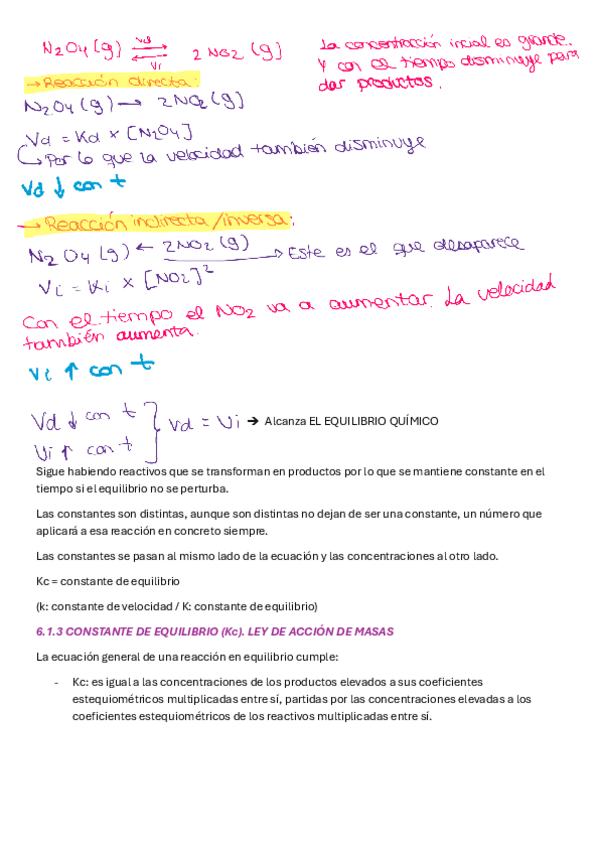 N2O4(g) ⇌ 2NO2(g)
Vd
Vi
La concentración inicial es grande.
Y con el tiempo disminuye para
dar productos.
→ Reacción directa:
N2O4(g) → 2NO2(g)
Vd = Kd x [N2O4]
↳ Por lo que la velocidad también disminuye
Vd ↓ con t
→ Reacción indirecta/inversa:
N2O4(g) ← 2NO2(g) → Este es el que desaparece
Vi = Ki x [NO2]²
Con el tiempo el NO2 va a aumentar. La velocidad
también aumenta.
Vi ↑ con t
Vd ↓ con t
Vi ↑ con t
} Vd = Vi → Alcanza EL EQUILIBRIO QUÍMICO
Sigue habiendo reactivos que se transforman en productos por lo que se mantiene constante en el
tiempo si el equilibrio no se perturba.
Las constantes son distintas, aunque son distintas no dejan de ser una constante, un número que
aplicará a esa reacción en concreto siempre.
Las constantes se pasan al mismo lado de la ecuación y las concentraciones al otro lado.
Kc = constante de equilibrio
(k: constante de velocidad / K: constante de equilibrio)
6.1.3 CONSTANTE DE EQUILIBRIO (Kc). LEY DE ACCIÓN DE MASAS
La ecuación general de una reacción en equilibrio cumple:
- Kc: es igual a las concentraciones de los productos elevados a sus coeficientes
estequiométricos multiplicadas entre sí, partidas por las concentraciones elevadas a los
coeficientes estequiométricos de los reactivos multiplicadas entre sí.